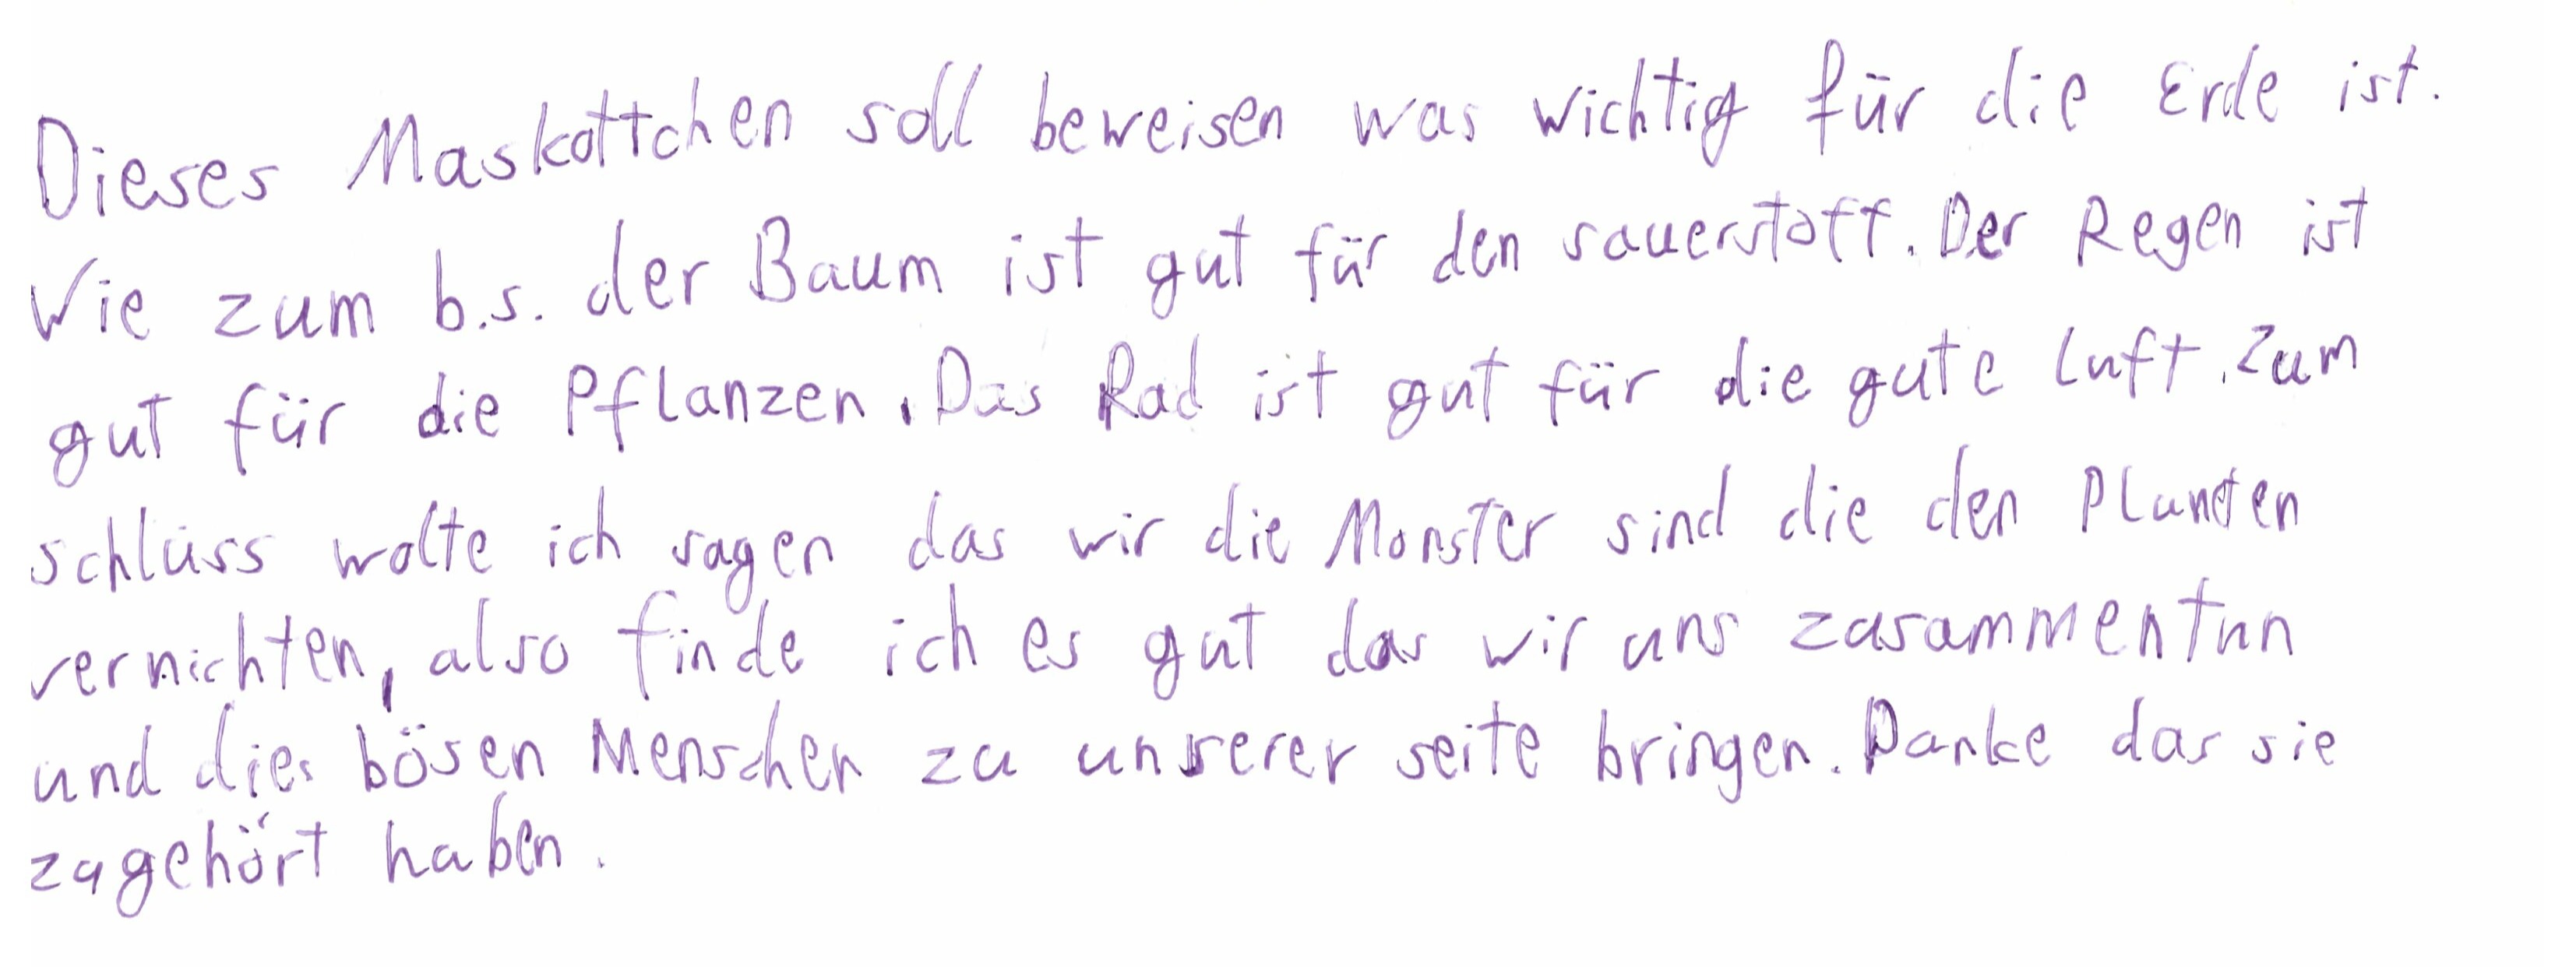 Dieses Maskottchen soll beweisen was wichtig für die Erde ist.
Wie zum b.s. der Baum ist gut für den sauerstoff. Der Regen ist
gut für die Pflanzen. Das Rad ist gut für die gute luft. Zum
schlüss wolte ich sagen das wir die Monster sind die den Planeten
vernichten, also finde ich es gut das wir uns zusammentun
und die bösen Menschen zu unserer seite bringen. Danke das sie
zugehört haben.